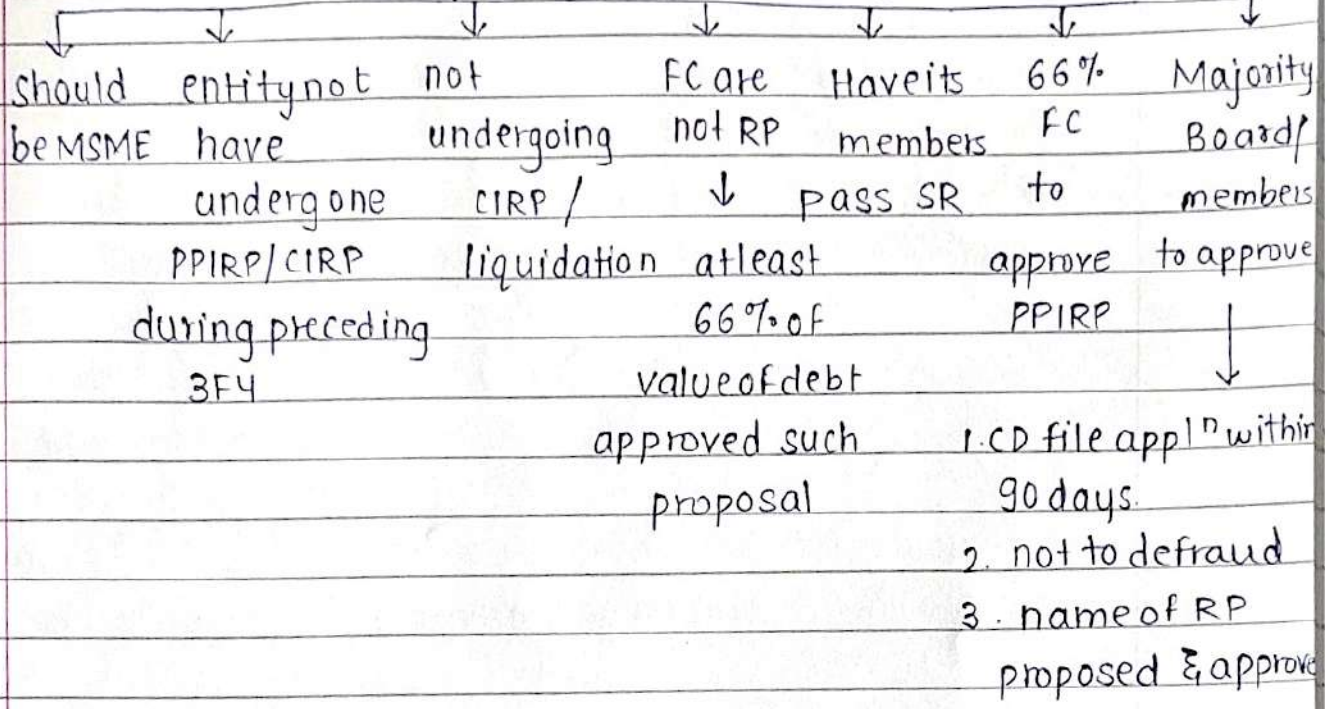 should
be MSME
entity not
have
undergone
PPIRP/CIRP
during preceding
3FY
not
undergoing
CIRP /
liquidation
FC are
not RP
↓
atleast
66% of
value of debt
approved such
proposal
Have its
members
pass SR
66%
FC
to
approve
PPIRP
Majority
Board/
members
to approve
1. CD file applⁿ within
90 days.
2. not to defraud
3. name of RP
proposed & approve